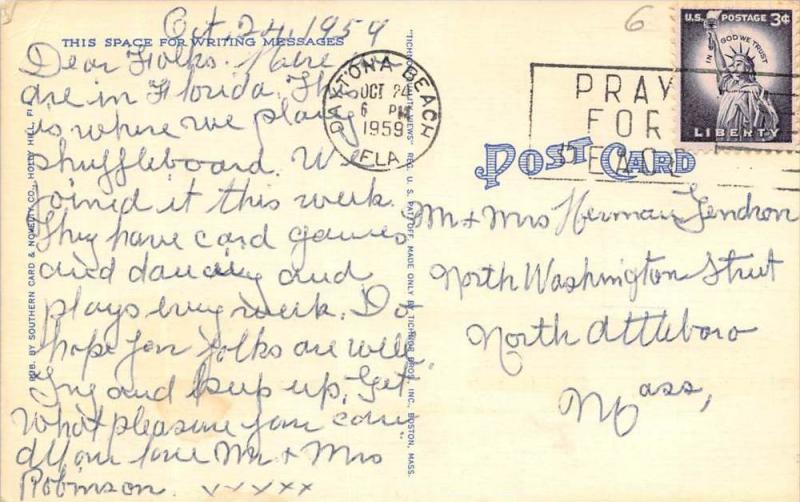 Oct. 24, 1959
THIS SPACE FOR WRITING MESSAGES
Dear Folks. Here we
are in Florida. This
is where we play
shuffleboard. We
joined it this week.
They have card games
and dancing and
plays every week. Do
hope you folks are well.
Try and keep up, Get
What pleasure you can.
all our love Mr + Mrs
Robinson. xxxxx
PUB. BY SOUTHERN CARD & NOVELTY CO., HOLLY HILL, FLA.
"TICHNOR QUALITY VIEWS" REG. U. S. PAT. OFF. MADE ONLY BY TICHNOR BROS., INC., BOSTON, MASS.
DAYTONA BEACH
OCT 24
6 PM
1959
FLA.
PRAY
FOR
PEACE
6
U.S. POSTAGE 3¢
IN GOD WE TRUST
LIBERTY
POST CARD
Mr + Mrs Herman Gendron
North Washington Street
North Attleboro
Mass,